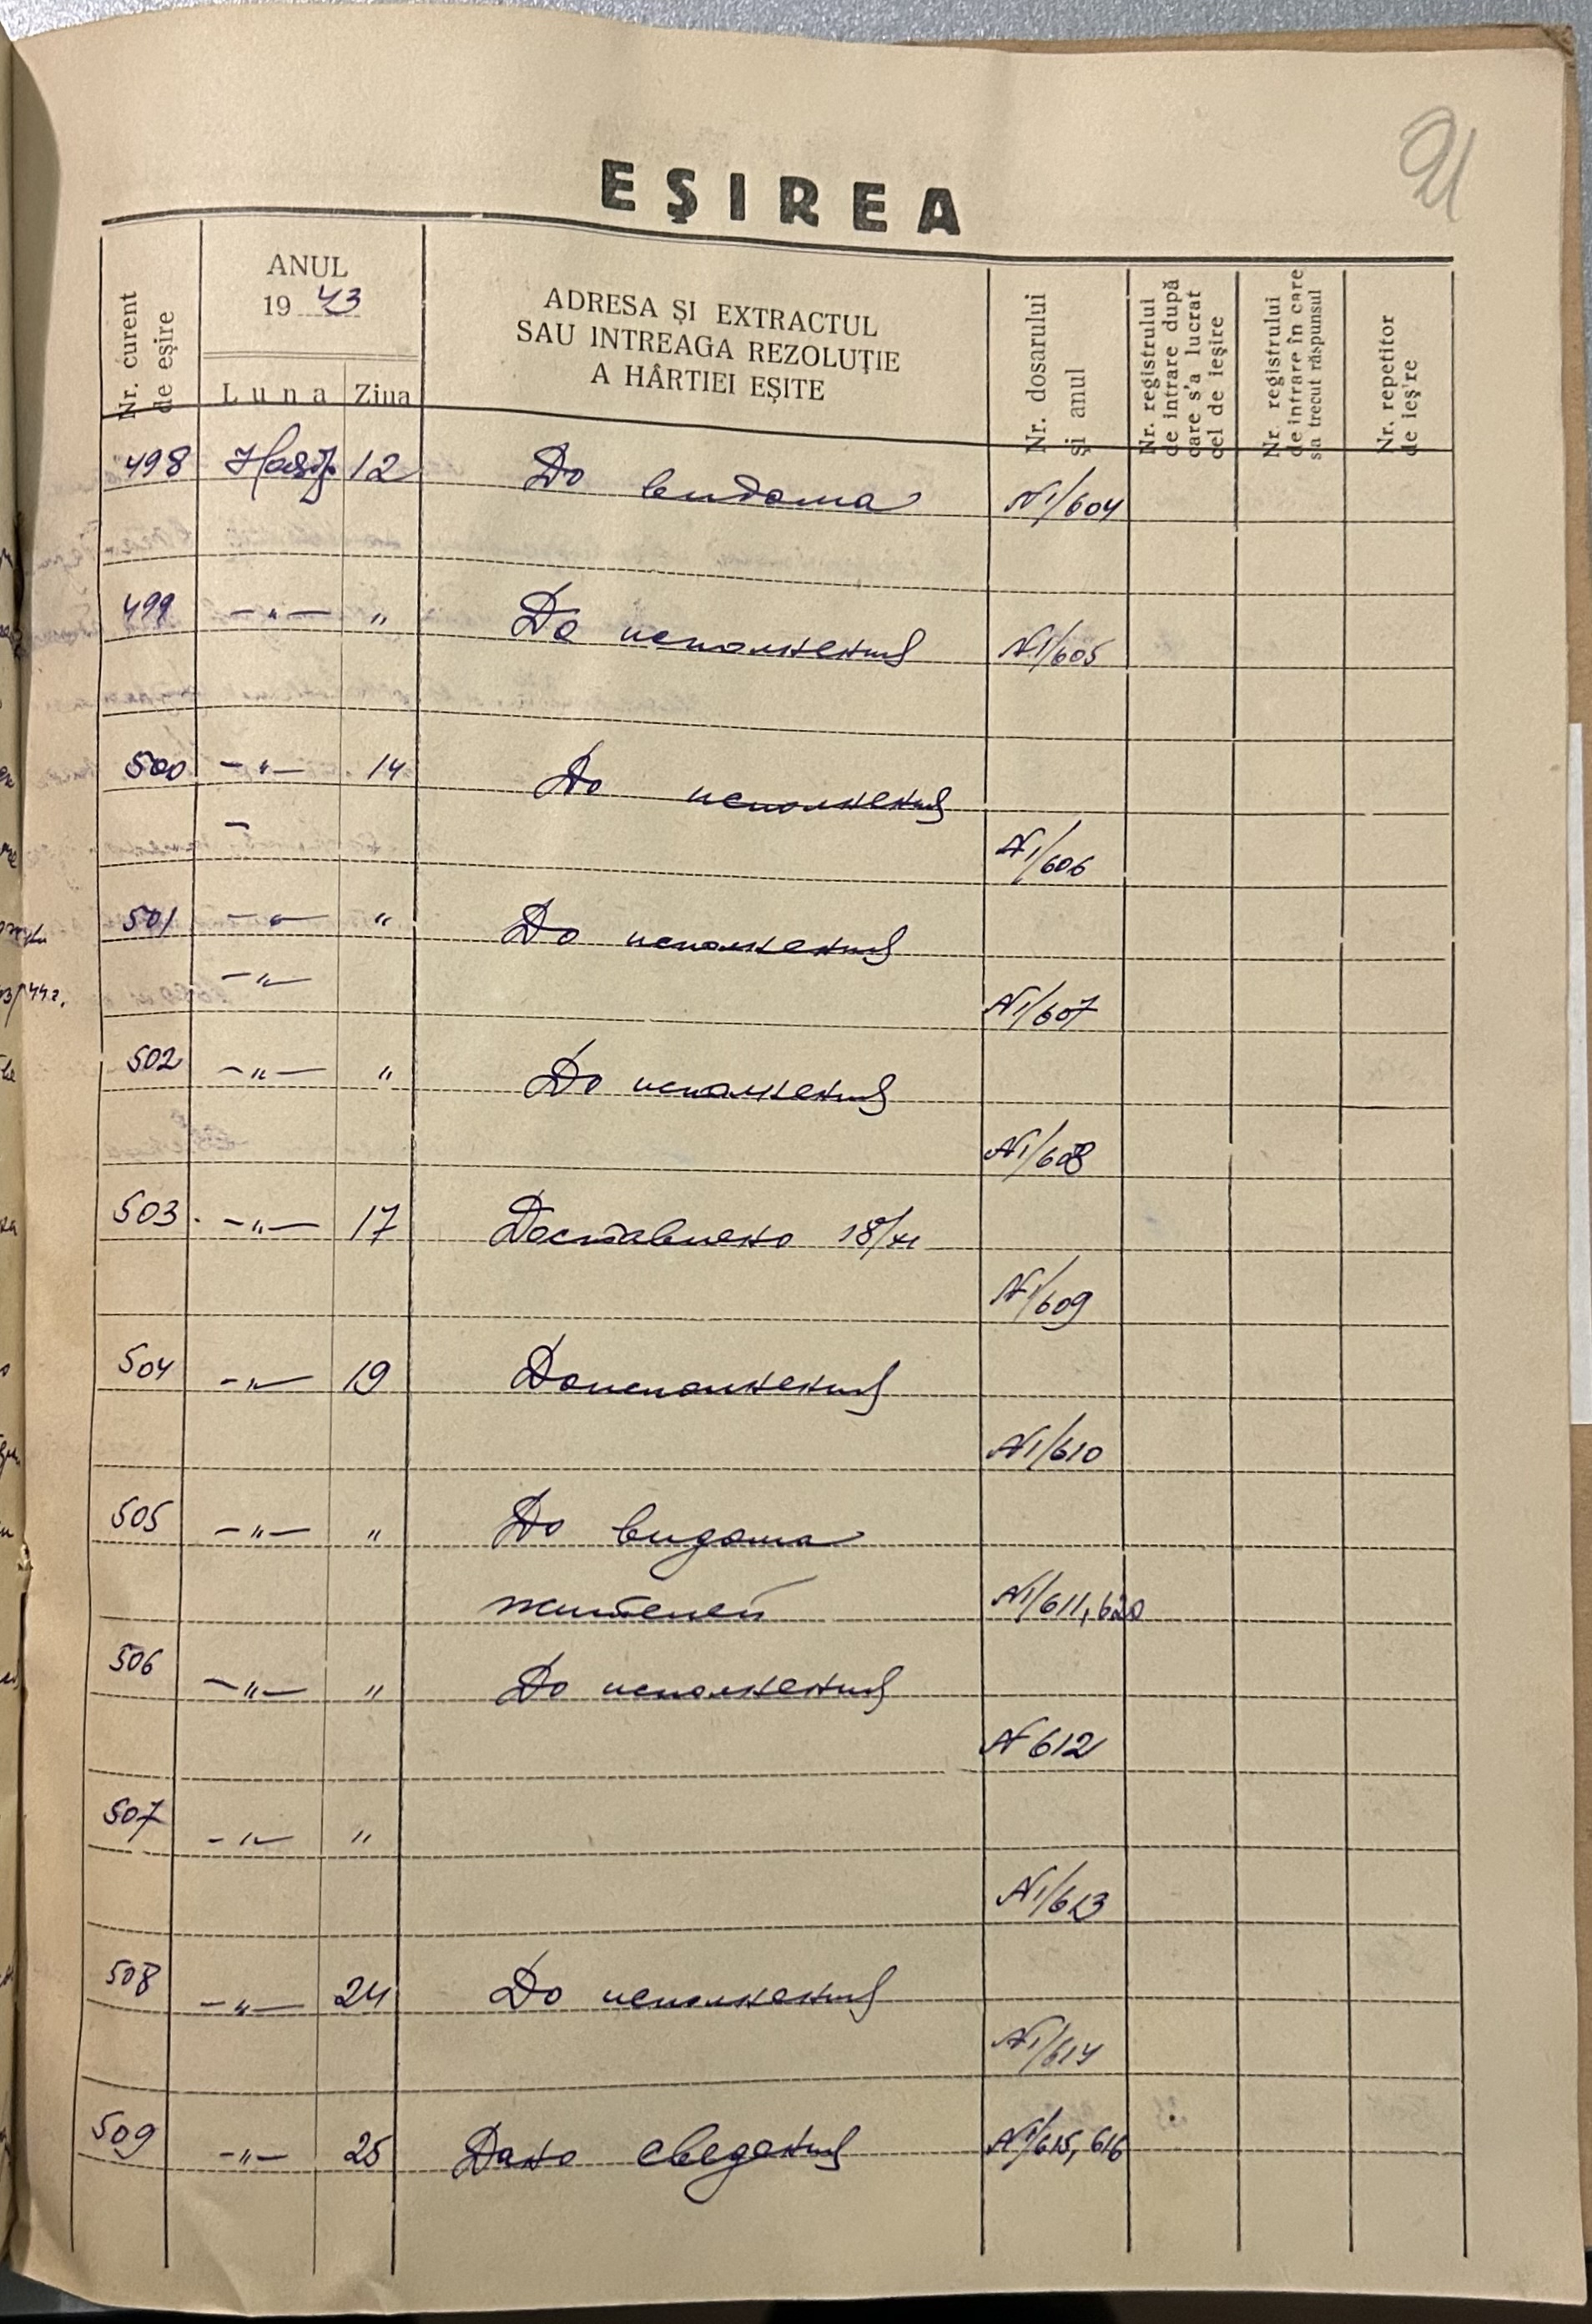 21
EŞIREA
Nr. curent de eşire
ANUL
19 43
Luna Ziua
ADRESA ŞI EXTRACTUL
SAU INTREAGA REZOLUŢIE
A HÂRTIEI EŞITE
Nr. dosarului şi anul
Nr. registrului de intrare după care s'a lucrat cel de ieşire
Nr. registrului de intrare în care s'a trecut răspunsul
Nr. repetitor de ieş're
498 12 До видома N1/604
499 —"— " До исполнения N1/605
500 —"— 14 До исполнения
N1/606
501 —"— " До исполнения
—"— N1/607
502 —"— " До исполнения
N1/608
503 —"— 17 Доставлено 18/XI
N1/609
504 —"— 19 До исполнения
N1/610
505 —"— " До видома
жителей N1/611, 620
506 —"— " До исполнения
N 612
507 —"— "
N1/613
508 —"— 24 До исполнения
N1/614
509 —"— 25 Дано сведения N1/615, 616